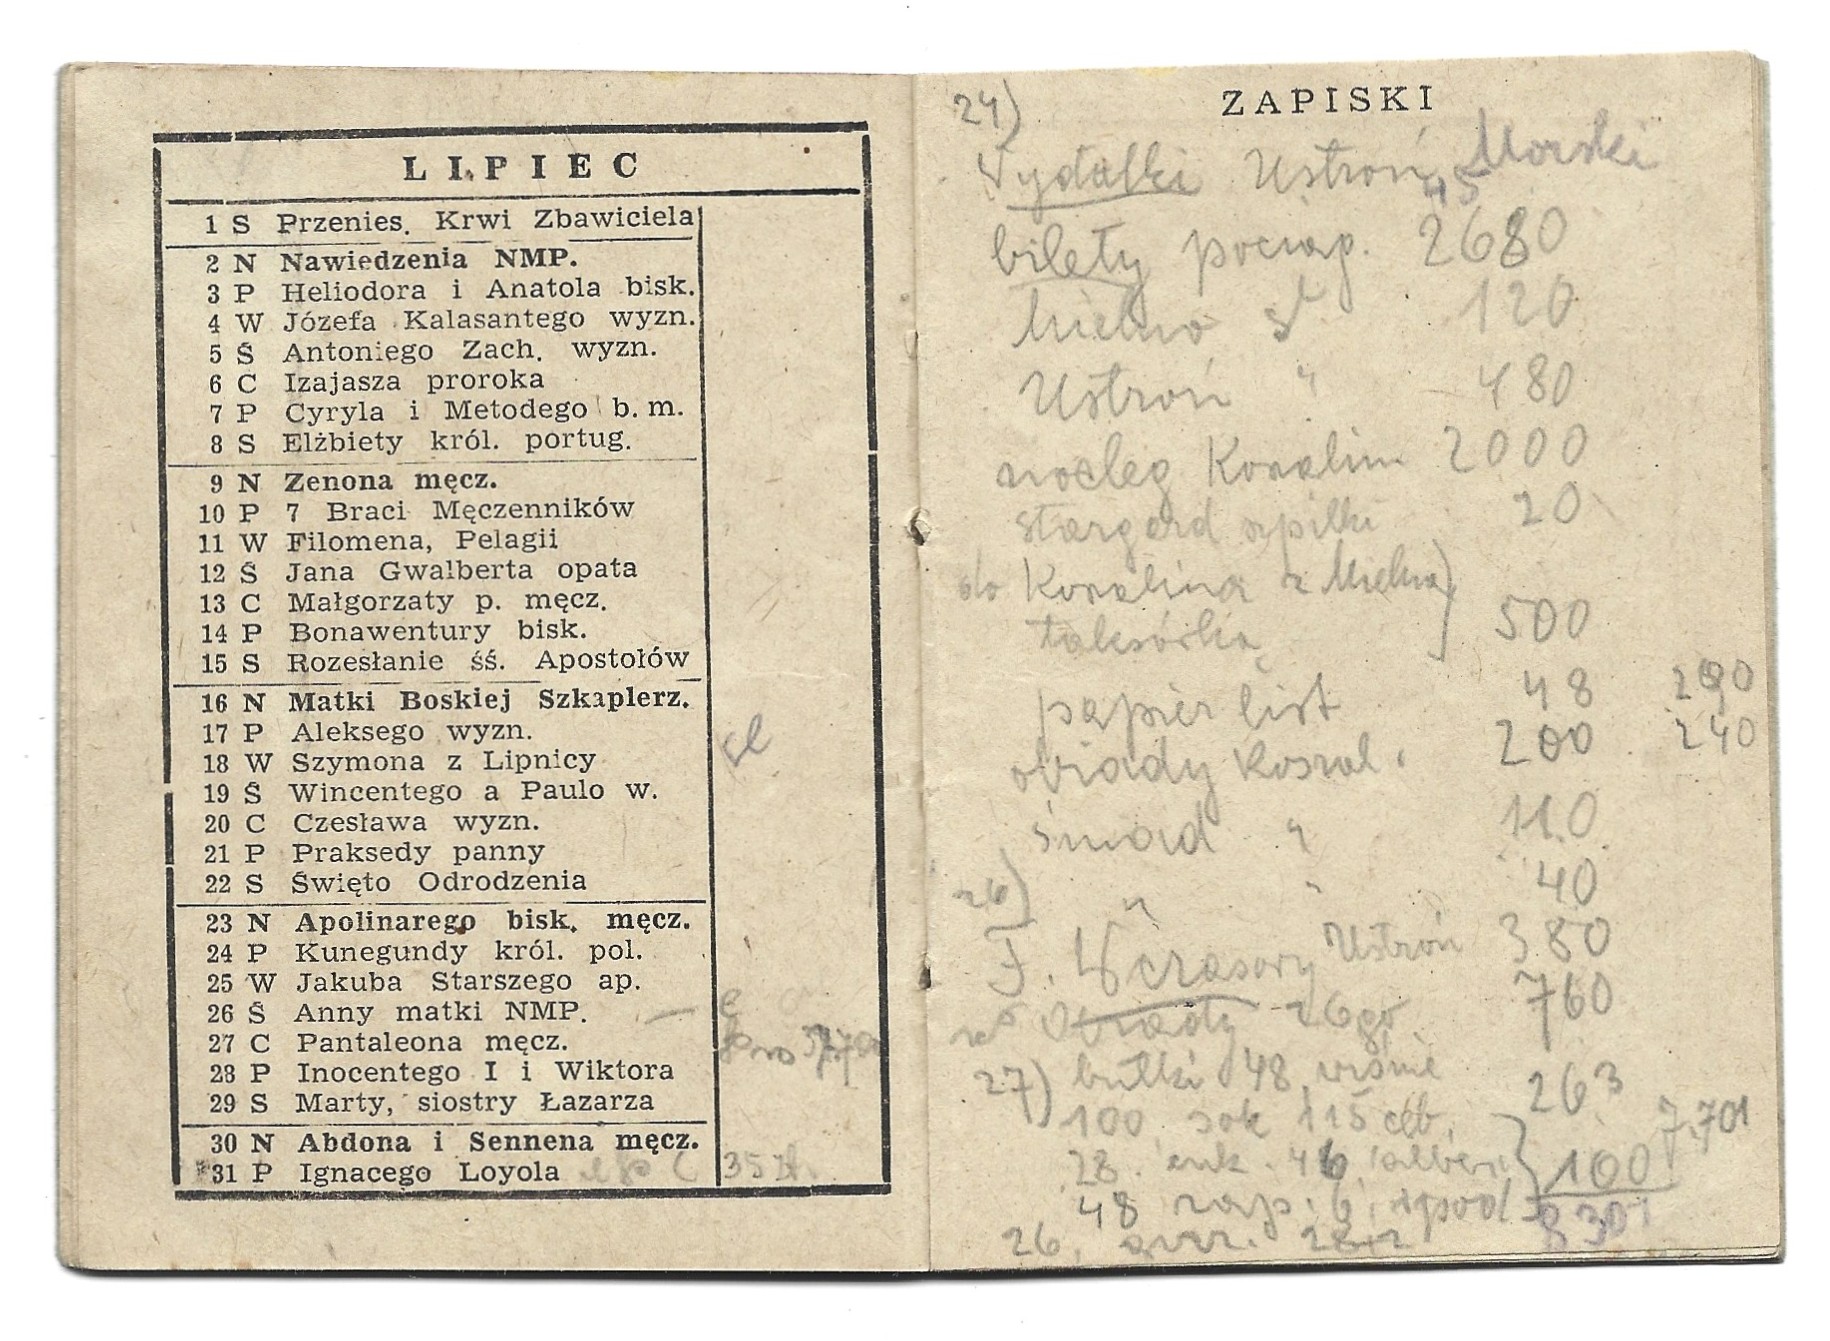 LIPIEC
1 S Przenies. Krwi Zbawiciela
2 N Nawiedzenia NMP.
3 P Heliodora i Anatola bisk.
4 W Józefa Kalasantego wyzn.
5 Ś Antoniego Zach. wyzn.
6 C Izajasza proroka
7 P Cyryla i Metodego b. m.
8 S Elżbiety król. portug.
9 N Zenona męcz.
10 P 7 Braci Męczenników
11 W Filomena, Pelagii
12 Ś Jana Gwalberta opata
13 C Małgorzaty p. męcz.
14 P Bonawentury bisk.
15 S Rozesłanie śś. Apostołów
16 N Matki Boskiej Szkaplerz.
17 P Aleksego wyzn.
18 W Szymona z Lipnicy
19 Ś Wincentego a Paulo w.
20 C Czesława wyzn.
21 P Praksedy panny
22 S Święto Odrodzenia
23 N Apolinarego bisk. męcz.
24 P Kunegundy król. pol.
25 W Jakuba Starszego ap.
26 Ś Anny matki NMP.
27 C Pantaleona męcz.
28 P Inocentego I i Wiktora
29 S Marty, siostry Łazarza
30 N Abdona i Sennena męcz.
31 P Ignacego Loyola 35 zł.
ZAPISKI
24)
Wydatki Ustroń Morski
45
bilety pociąg. 2680
Mielno 120
Ustroń " 480
nocleg Koszalin 2000
Stargard szpilki 20
do Koszalina z Mielna
taksówką 500
papier list 48 290
obiady Koszal. 200 240
śniad " 110
" " 40
26)
F. Wczasowy Ustroń 380
Obiady 26go 760
27) bułki 48, wiśnie 263
100, sok 115 7.701
28. cuk. 46 100
48 zap. 6, 8301
26,